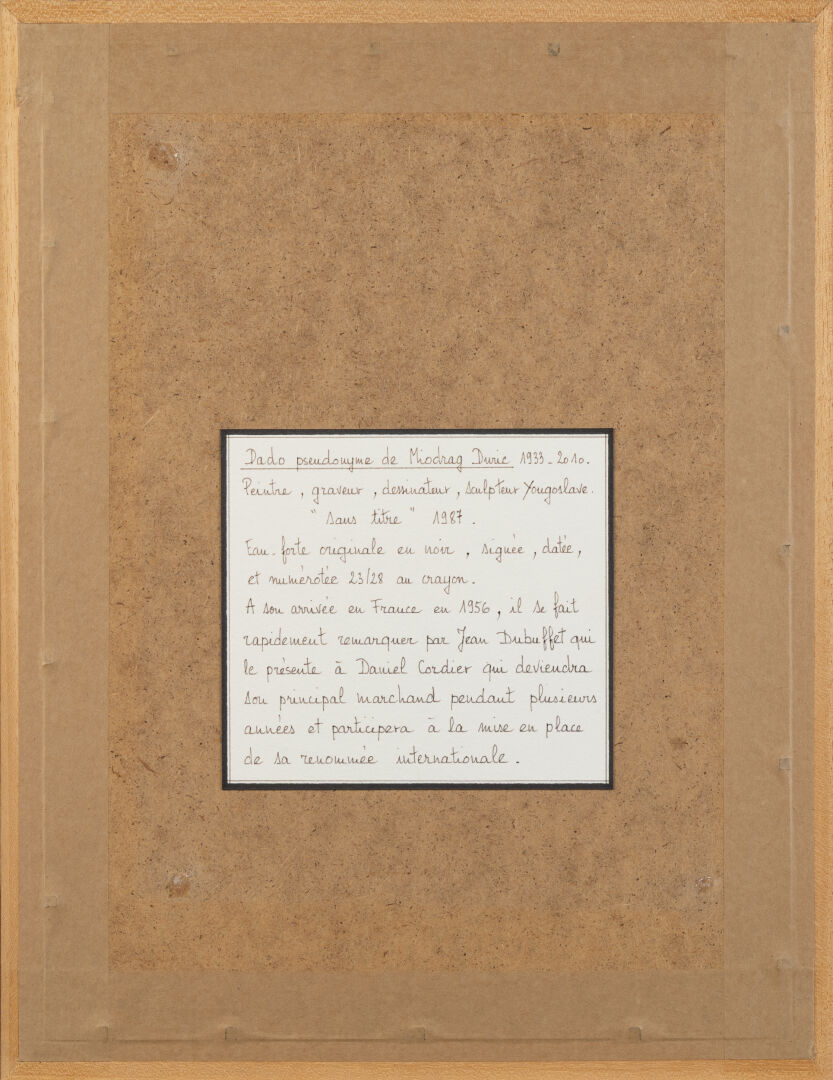 Dado pseudonyme de Miodrag Duric 1933-2010.
Peintre, graveur, dessinateur, sculpteur Yougoslave.
"Sans titre" 1987.
Eau-forte originale en noir, signée, datée,
et numérotée 23/28 au crayon.
A son arrivée en France en 1956, il se fait
rapidement remarquer par Jean Dubuffet qui
le présente à Daniel Cordier qui deviendra
son principal marchand pendant plusieurs
années et participera à la mise en place
de sa renommée internationale.